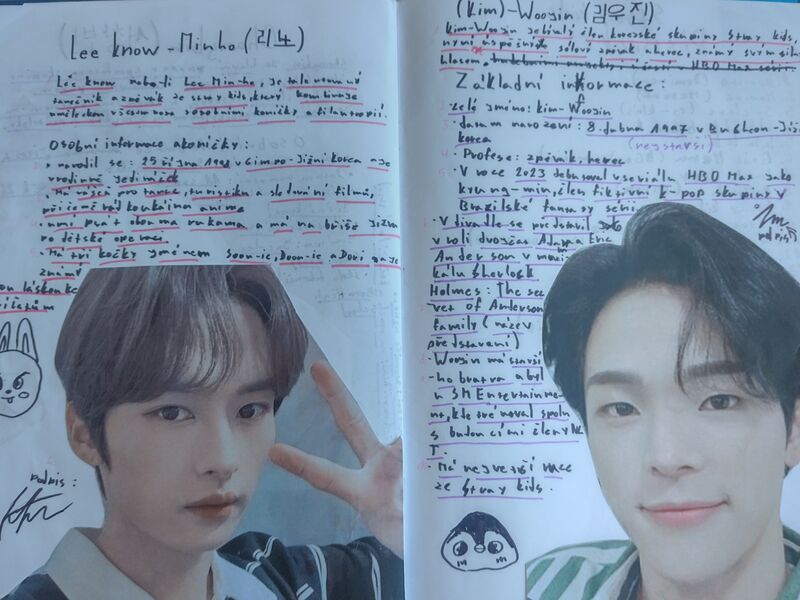 Lee know - Minho (리노)
Lee know neboli Lee Min-ho, je talentovaný
tanečník a zpěvák ze stray kids, který kombinuje
uměleckou všestrannost s osobními koníčky a filantropií.
Osobní informace a koníčky:
narodil se: 25 října 1998 v Gimpo-Jižní korea a je
v rodině jedináček
Má vášeň pro tanec, turistiku a sledování filmů,
přičemž rád kouká i na anime
umí psát oběma rukama a má na břiše jizvu
po dětské operaci
Má tři kočky jménem Soon-ie, Doon-ie a Dori a je
známý
láskou ke
zvířatům
podpis:
(Kim)-Woojin (김우진)
Kim-Woojin je bývalý člen korejské skupiny Stray kids,
nyní úspěšný sólový zpěvák a herec, známý svým
hlasem, HBO Max sérii.
Základní informace:
celé jméno: Kim-Woojin
datum narození: 8. dubna 1997 v Bucheon-Jižní
korea (nejstarší)
Profese: zpěvák, herec
V roce 2023 debutoval v seriálu HBO Max jako
kyung-min, člen fiktivní k-pop skupiny v
Brazilské fantasy sérii
podpis
V divadle se představil jako
v roli dvojčat Adam a Eric
Anderson v muzi-
kálu Sherlock
Holmes: The sec
ret of Anderson
family (název
představení)
Woojin má starší
-ho bratra a byl
u SM Entertainme-
nt, kde trénoval spolu
s budoucími členy NC
T.
Má největší race
ze Stray kids.